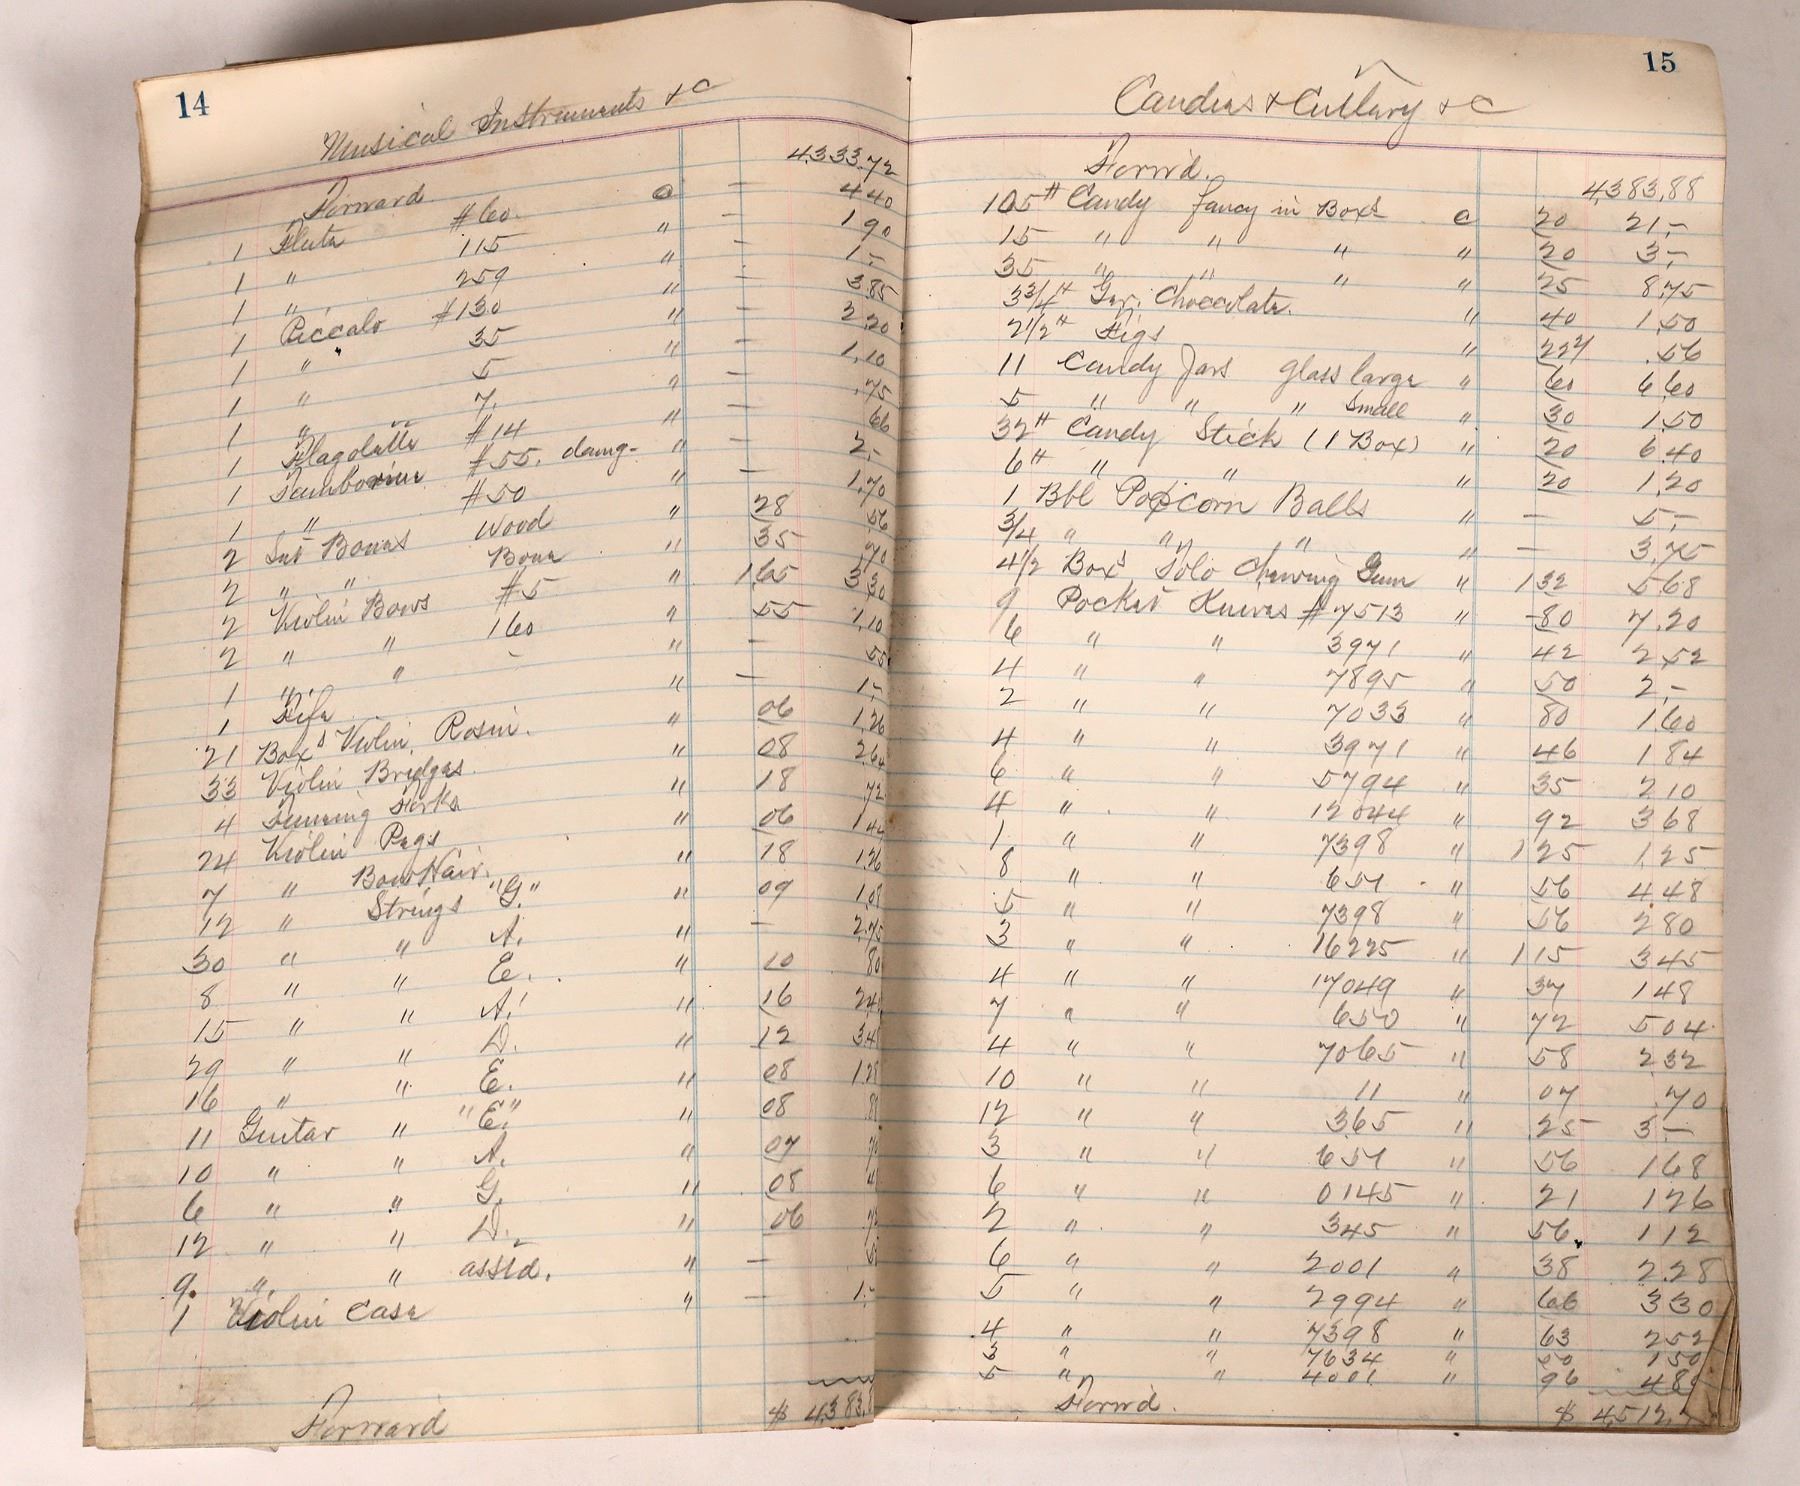 14
Musical Instruments & C
Forward 4333.72
1 Flute #60. @ — 4 40
1 " 115 " — 1 90
1 " 259 " — 1.-
1 Piccalo #130 " — 3.85
1 " 35 " — 2.20
1 " 5 " — 1.10
1 " 7. " — .75
1 Flagolette #14 " — 66
1 Tambourine #55. damg- " — 2.-
1 " #50 " — 1.70
2 Set Bones Wood " 28 .56
2 " " Bone " 35 .70
2 Violin Bows #5 " 165 3 30
2 " " 160 " 55 1.10
1 " " - " — .55
1 Fife " — 1.-
21 Boxs Violin Rosin. " 06 1.26
33 Violin Bridges " 08 2.64
4 Tunning Forks " 18 .72
24 Violin Pegs " 06 1 44
7 " Bow Hair. " 18 1.26
12 " Strings "G." " 09 1.08
30 " " A. " — 2.75
8 " " E. " 10 80
15 " " A. " 16 2 4
29 " " D. " 12 3 48
16 " " E. " 08 1.28
11 Guitar " "E." " 08 8
10 " " A. " 07 70
6 " " G. " 08 4
12 " " D. " 06 72
9. " " asstd. " —
1 Violin Case " — 1.-
Forward $ 4,383.8
15
Candies & Cutlary & C
Forw'd. 4,383.88
105# Candy fancy in Boxs @ 20 21.-
15 " " " " 20 3.-
35 " " " " 25 8.75
3 3/4# Ger. Choccolate. " 40 1.50
2 1/2# Figs " 22 1/2 .56
11 Candy Jars glass large " 60 6 60
5 " " " Small " 30 1.50
32# Candy Stick (1 Box) " 20 6.40
6# " " " 20 1.20
1 Bbl Popcorn Balls " — 5.-
3/4 " " " " — 3.75
4 1/2 Boxs Solo Chewing Gum " 1 32 5 68
9 Pocket Knives #7513 " 80 7.20
6 " " 3971 " 42 2 52
4 " " 7895 " 50 2.-
2 " " 7033 " 80 1.60
4 " " 3971 " 46 1 84
6 " " 5794 " 35 2 10
4 " " 12044 " 92 3 68
1 " " 7398 " 1 25 1.25
8 " " 651 " 56 4.48
5 " " 7398 " 56 2 80
3 " " 16225 " 1 15 3 45
4 " " 17049 " 37 1 48
7 " " 650 " 72 5 04
4 " " 7065 " 58 2 32
10 " " 11 " 07 .70
12 " " 365 " 25 3.-
3 " " 651 " 56 1 68
6 " " 0145 " 21 1 26
2 " " 345 " 56 1 12
6 " " 2001 " 38 2.28
5 " " 2994 " 66 3 30
4 " " 7398 " 63 2 52
3 " " 7634 " 50 1 50
5 " " 4001 " 96 4 8
Forw'd. $ 4,512.